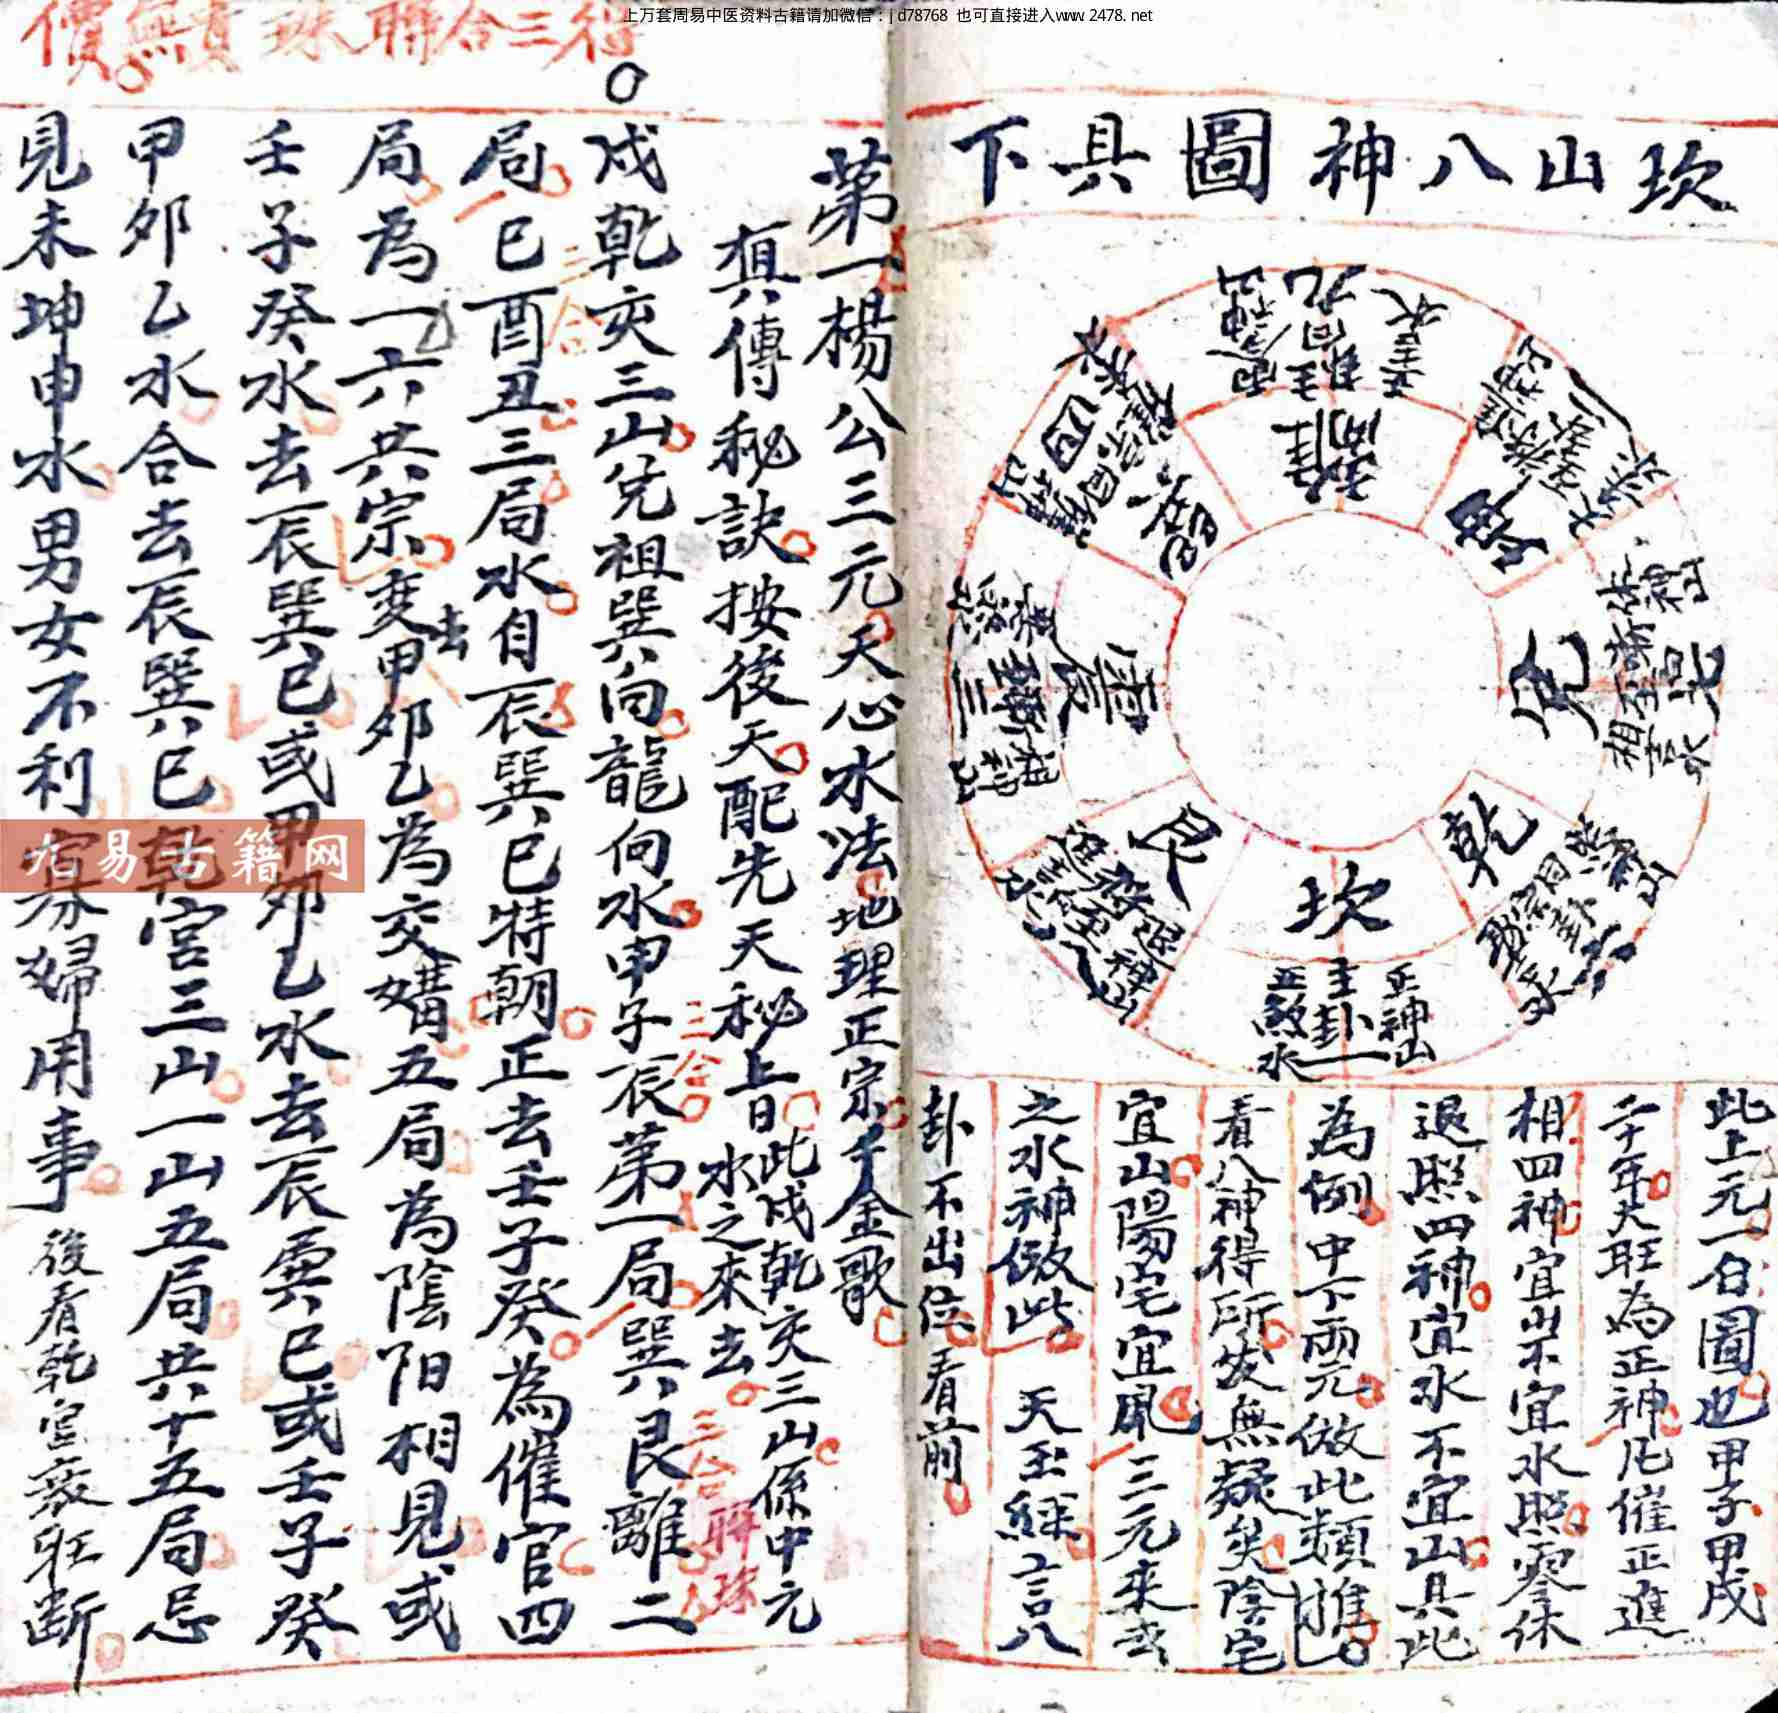 上万套周易中医资料古籍请加微信：jd78768 也可直接进入www.2478.net
坎山八神圖具下
離
坤
兌
乾
坎
艮
震
巽
正神山
主卦一
正煞水
此上元一白圖也甲子甲戌
二十年大旺為正神凡催正進
相四神宜山不宜水照零休
退照四神宜水不宜山具此
為例中下兩元倣此類推
看八神得所發無疑矣陰宅
宜山陽宅宜風三元來去
之水神倣此 天玉經言八
卦不出位看前
得三合聯珠貴無價
第一楊公三元天心水法地理正宗千金歌
真傳秘訣按後天配先天秘上曰此戌乾亥三山係中元
水之來去
戌乾亥三山兌祖巽向龍向水申子辰第一局巽艮離二
局巳酉丑三局水自辰巽巳特朝正去壬子癸為催官四
局為一六共宗变甲卯乙為交媾五局為陰阳相見或
去
壬子癸水去辰巽巳或甲卯乙水去辰巽巳或壬子癸
甲卯乙水合去辰巽巳乾宫三山一山五局共十五局忌
見未坤申水男女不利寡婦用事後看乾宫衰旺断
三合
三合
三合聯珠
九易古籍网